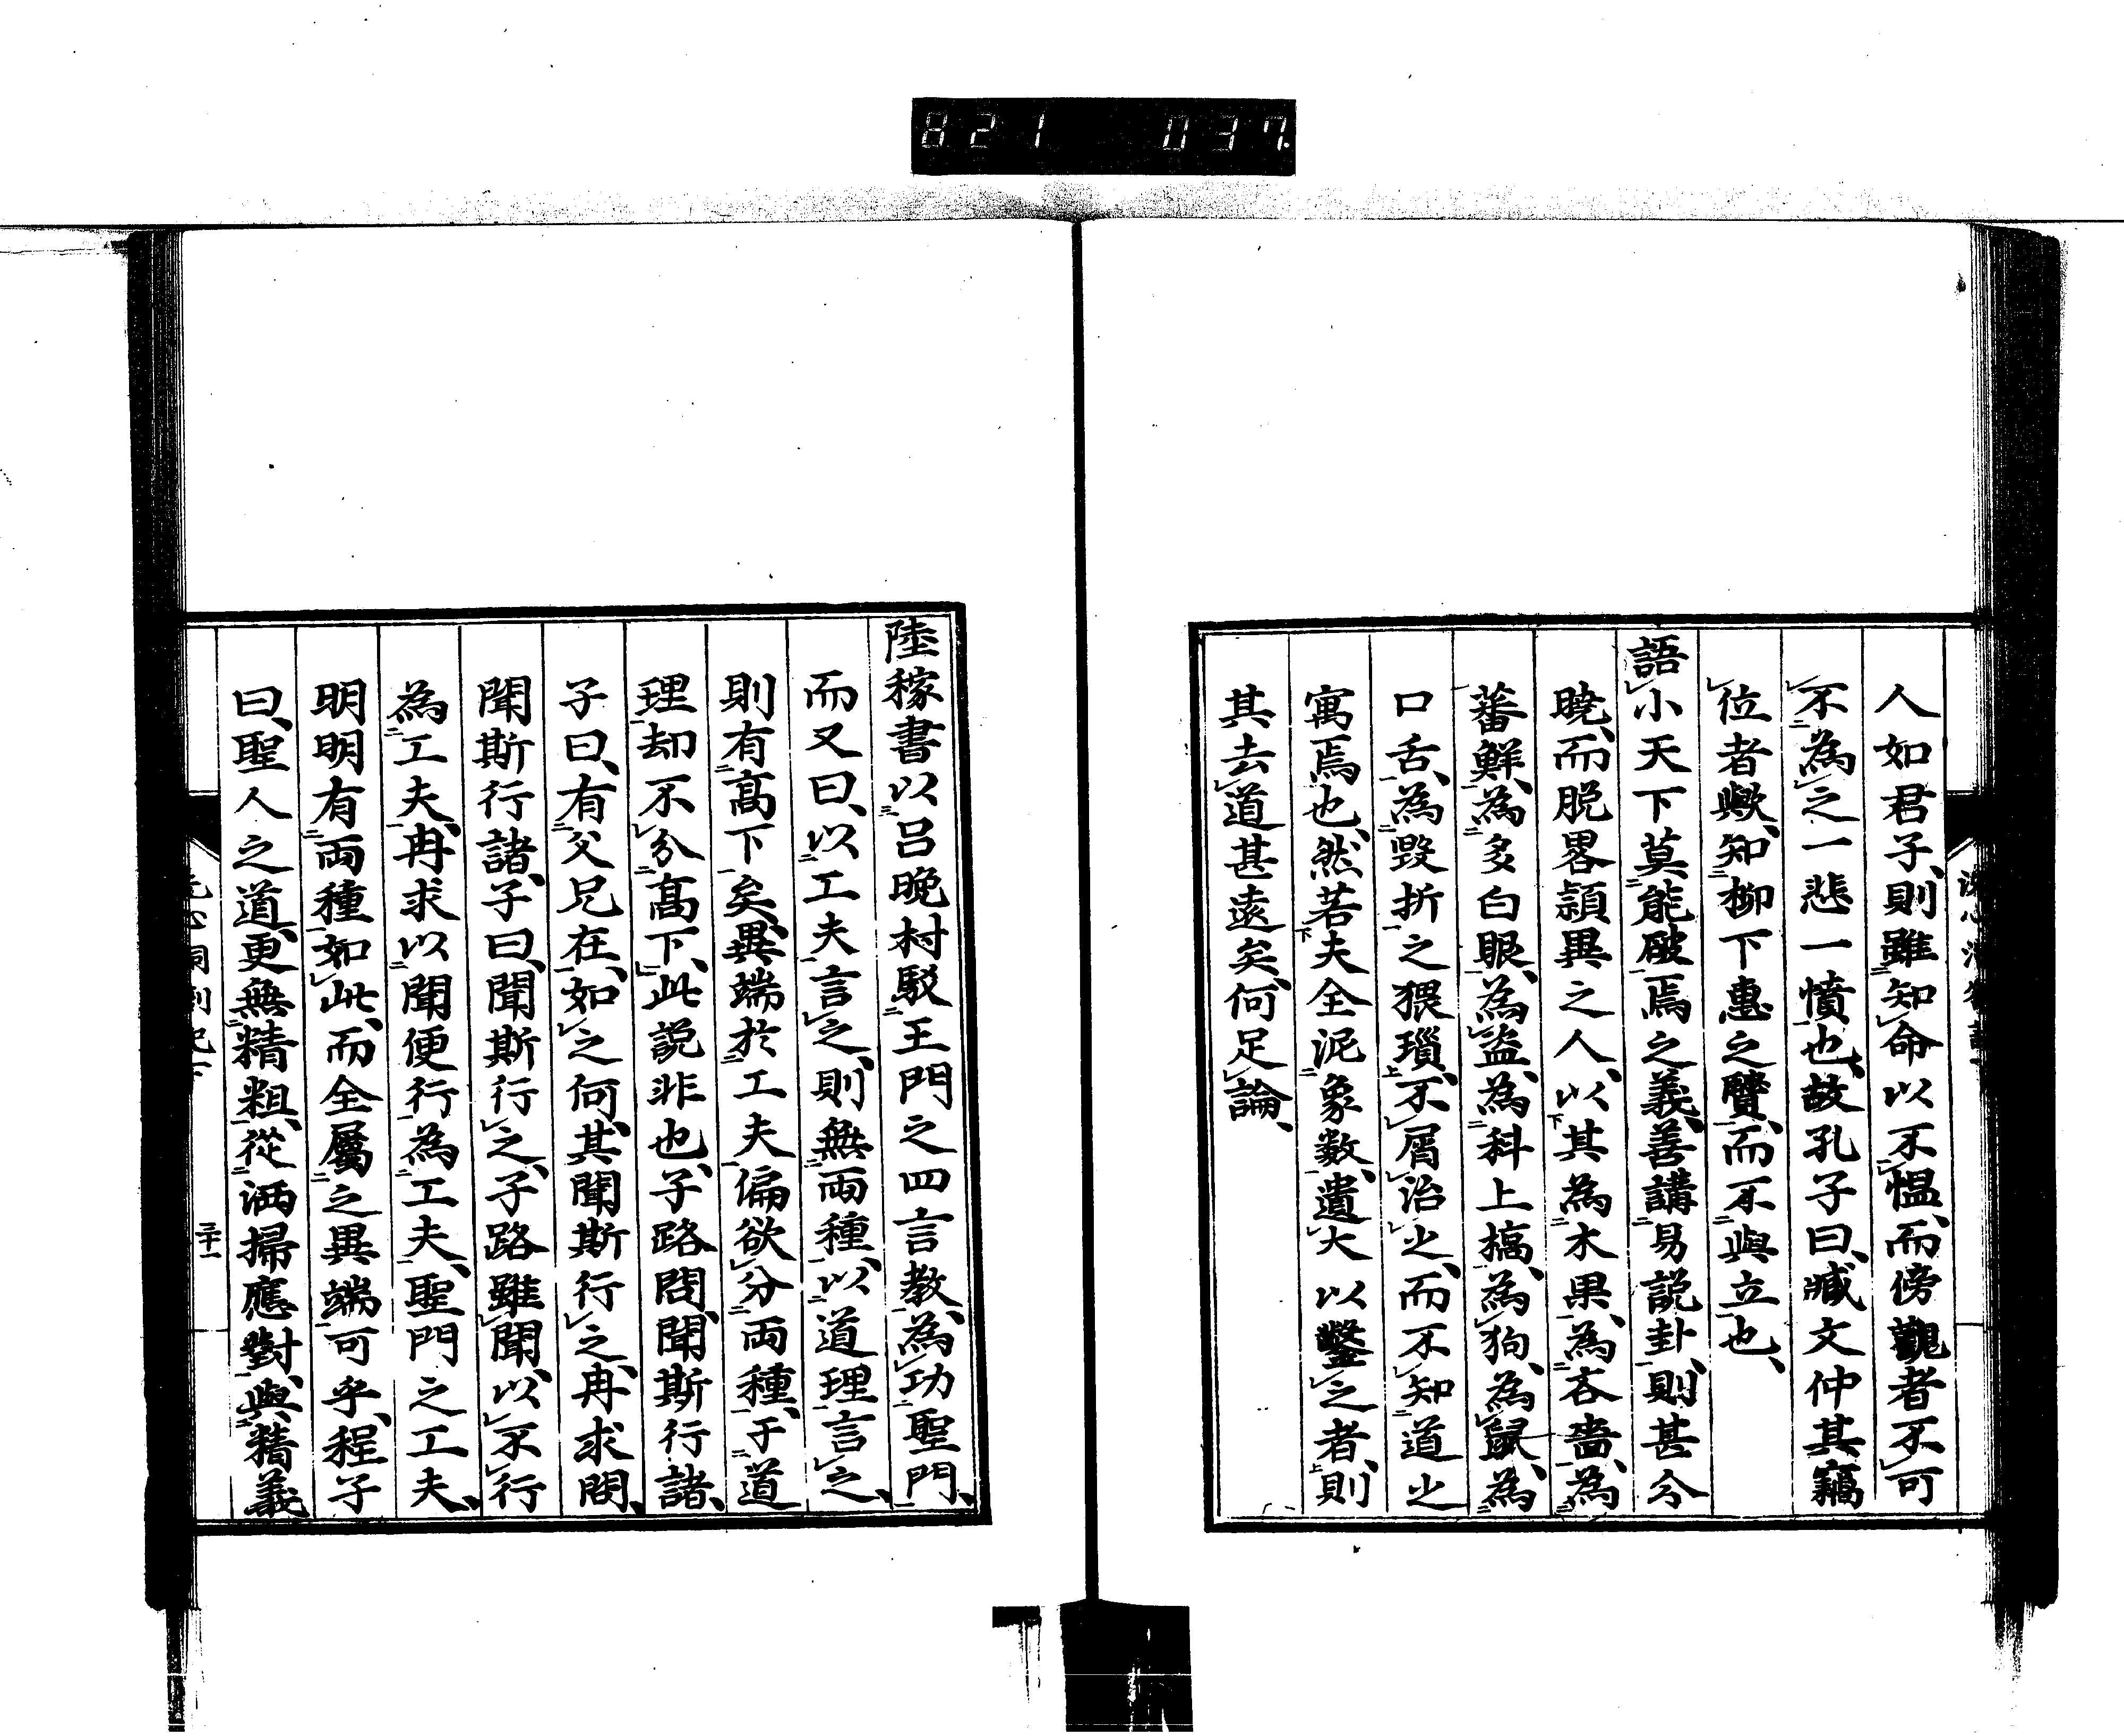 821 037.
人如君子、則雖知命以不慍、而傍觀者不可
不為之一悲一憤也、故孔子曰、臧文仲其竊
位者歟、知柳下惠之賢、而不與立也、
語小天下莫能破焉之義、善講易說卦、則甚分
曉、而脫畧頴異之人、以其為木果、為吝嗇、為
蕃鮮、為多白眼、為盜、為科上槁、為狗、為鼠、為
口舌、為毀折之猥瑣、不屑治之、而不知道之
寓焉也、然若夫全泥象數、遺大以鑿之者、則
其去道甚遠矣、何足論、
陸稼書以呂晚村駁王門之四言教、為功聖門、
而又曰、以工夫言之、則無兩種、以道理言之、
則有高下矣、異端於工夫偏欲分兩種、于道
理却不分高下、此說非也、子路問、聞斯行諸、
子曰、有父兄在、如之何、其聞斯行之、冉求問、
聞斯行諸、子曰、聞斯行之、子路雖聞、以不行
為工夫、冉求以聞便行為工夫、聖門之工夫、
明明有兩種如此、而全屬之異端可乎、程子
曰、聖人之道、更無精粗、從洒掃應對、與精義
三十一